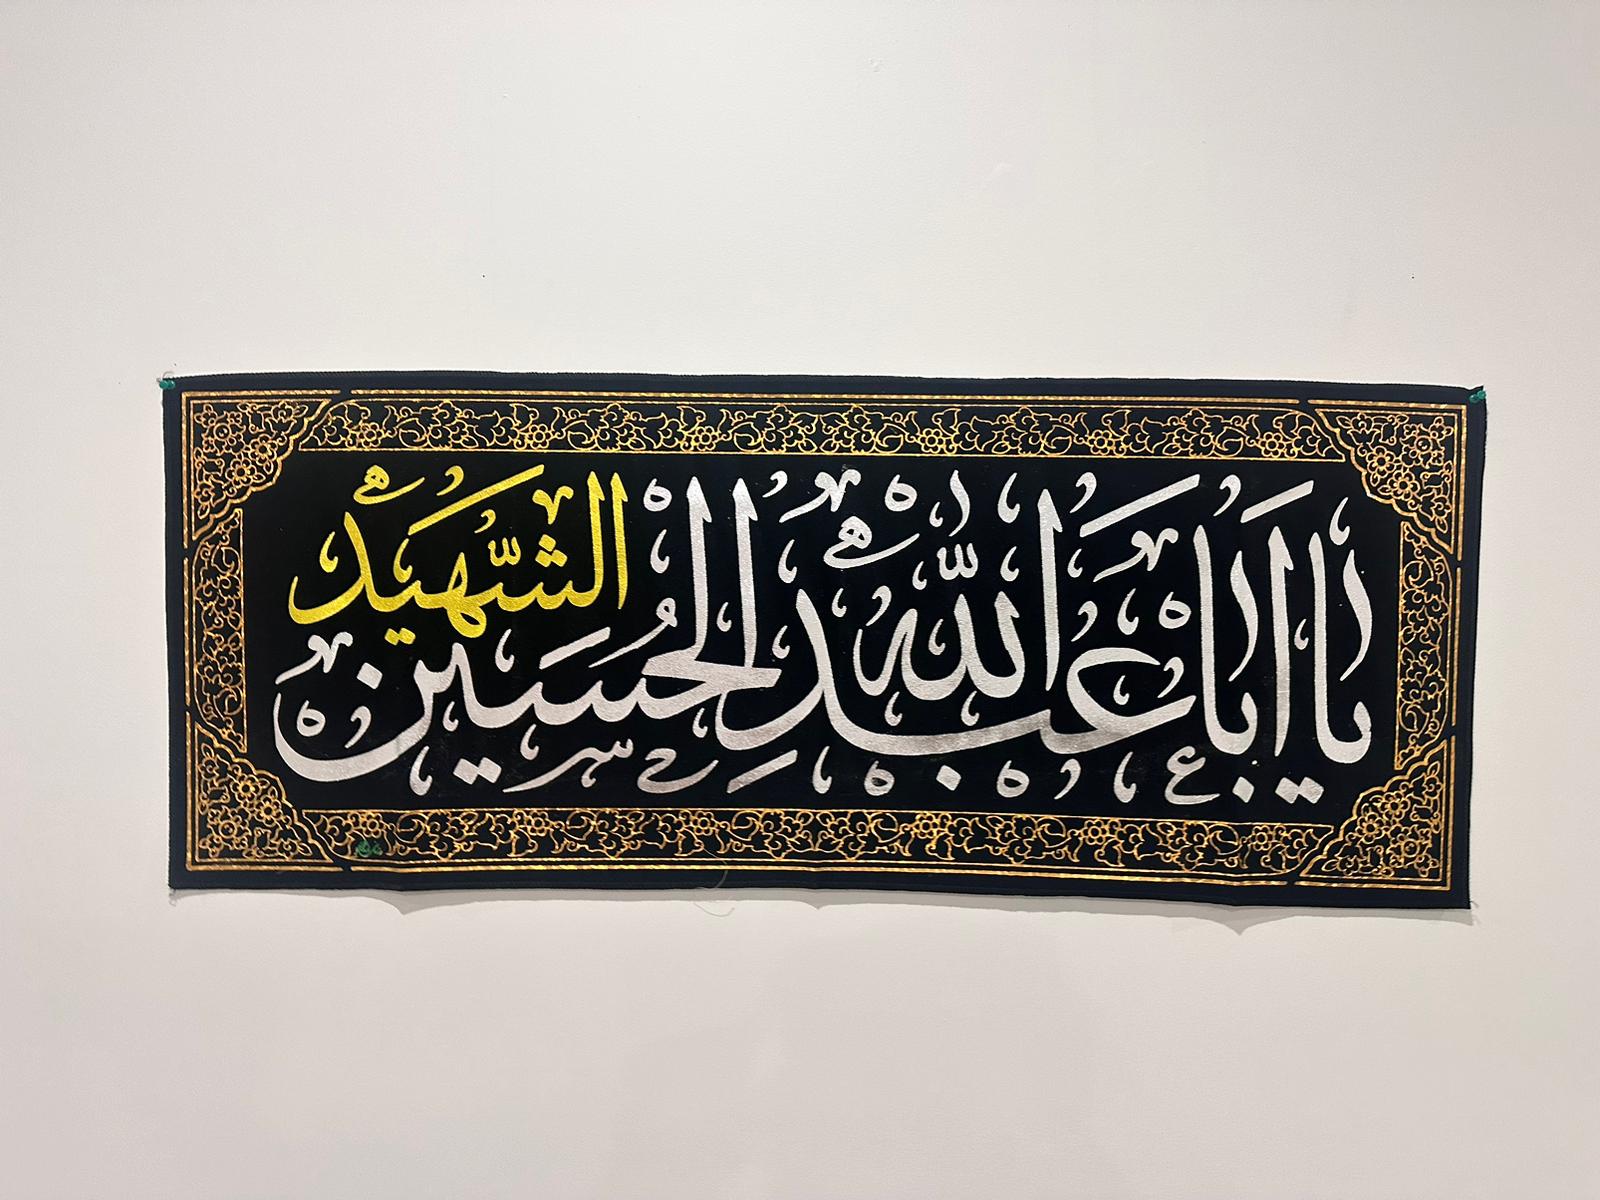 يا اَبا عَبدِ الله الحُسَين الشّهید